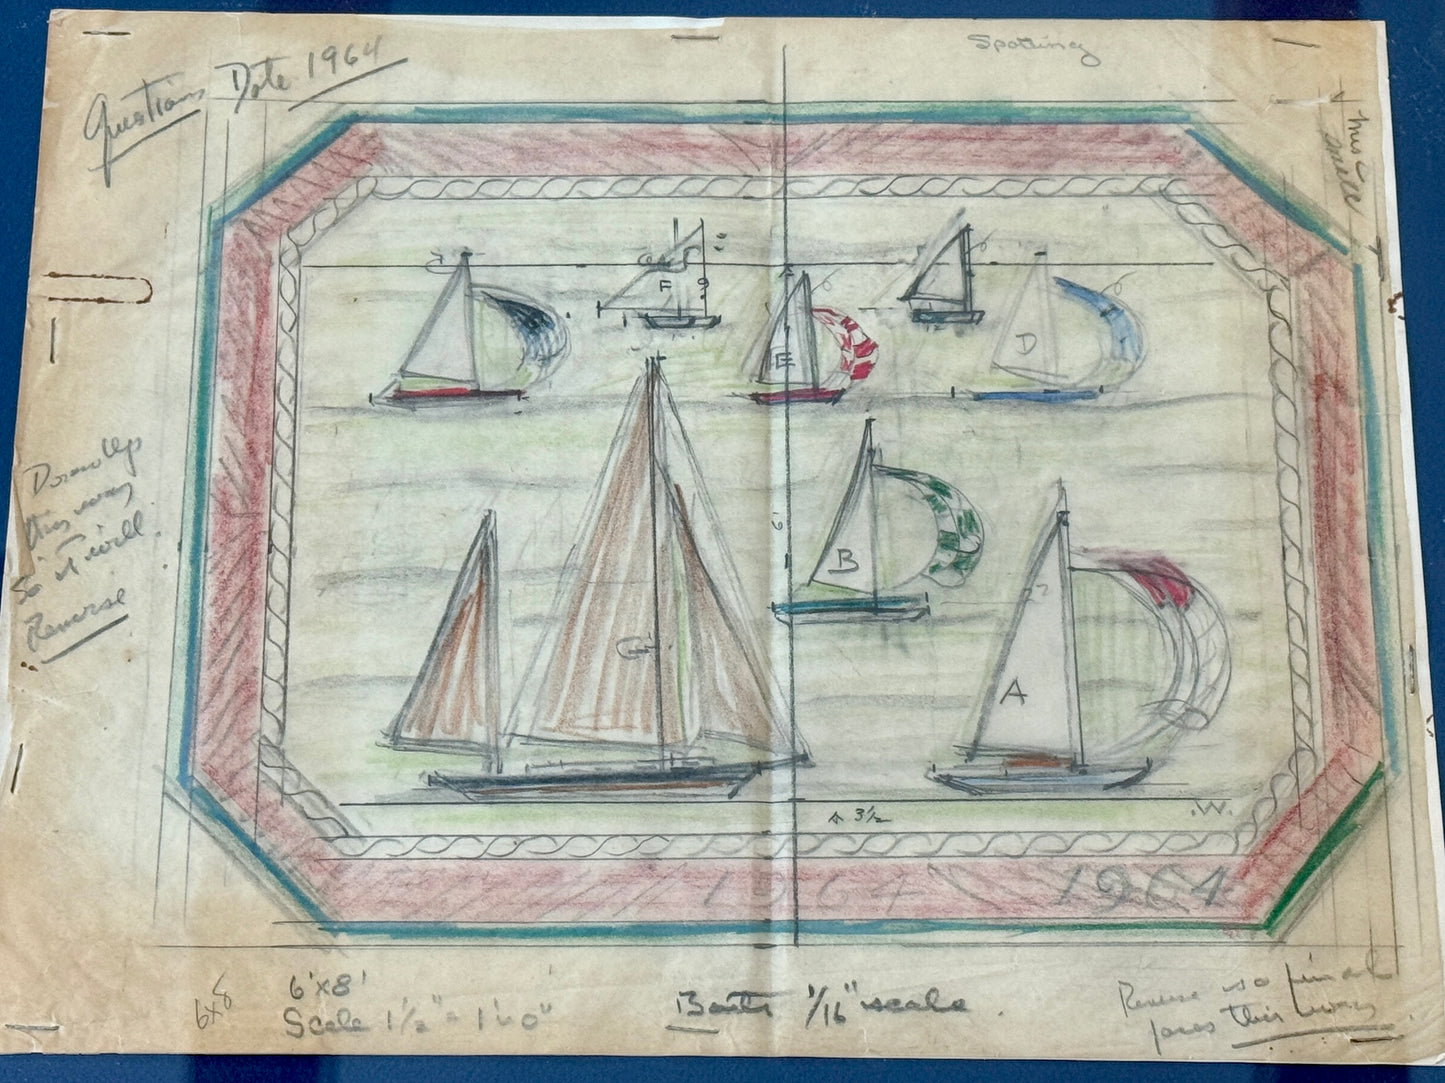 Questions Date 1964
Spotting
F
9
E
D
B
6'
G
A
27
3½
.W.
1964
1964
Drawn Up
this way
so it will
Reverse
6x8
6'x8'
Scale 1½" = 1'0"
Boats 1/16" scale.
Reverse so final
faces this way